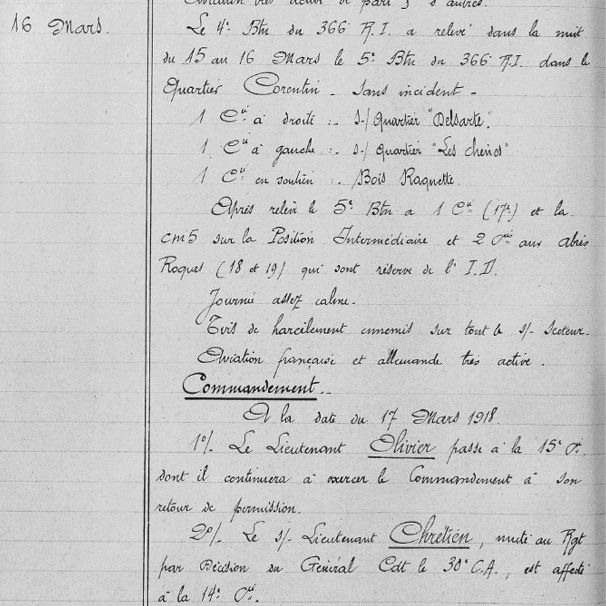 Aviation très active de part & d'autres.
16 Mars.
Le 4e Btn du 366e R.I. a relevé dans la nuit
du 15 au 16 Mars le 5e Btn du 366e R.I. dans le
Quartier Corentin - sans incident -
1 Cie à droite :- s-/Quartier "Delsarte".
1 Cie à gauche :- s-/Quartier "Les Chênes"
1 Cie en soutien :- Bois Raquette.
Après relève le 5e Btn a 1 Cie (17e) et la
CM5 sur la Position Intermédiaire et 2 Cies aux abris
Roques (18 et 19) qui sont réserve de l'I.D.
Journée assez calme.
Tirs de harcèlement ennemis sur tout le s/- Secteur.
Aviation française et allemande très active.
Commandement.-
A la date du 17 Mars 1918.
1°/- Le Lieutenant Olivier passe à la 15e Cie
dont il continuera à exercer le Commandement à son
retour de permission.
2°/- Le s/- Lieutenant Chrétien, muté au Rgt
par Décision du Général Cdt le 30e C.A., est affecté
à la 14e Cie.